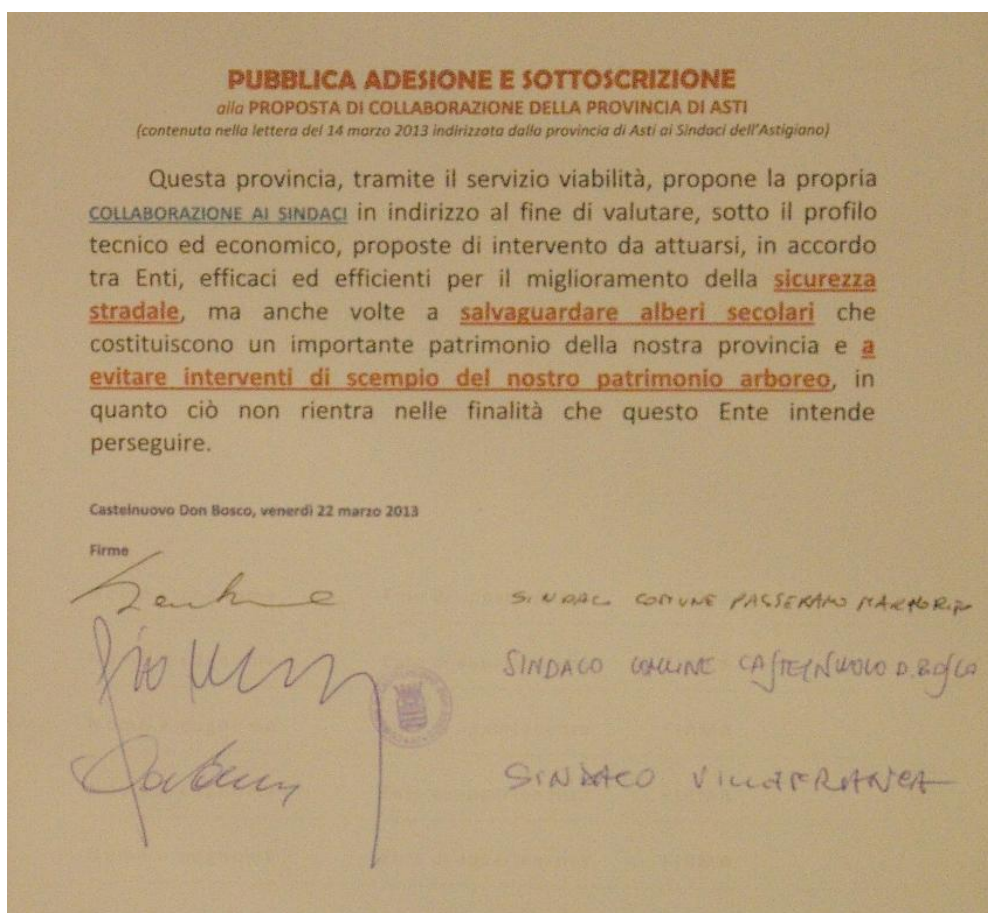 PUBBLICA ADESIONE E SOTTOSCRIZIONE
alla PROPOSTA DI COLLABORAZIONE DELLA PROVINCIA DI ASTI
(contenuta nella lettera del 14 marzo 2013 indirizzata dalla provincia di Asti ai Sindaci dell'Astigiano)
Questa provincia, tramite il servizio viabilità, propone la propria
COLLABORAZIONE AI SINDACI in indirizzo al fine di valutare, sotto il profilo
tecnico ed economico, proposte di intervento da attuarsi, in accordo
tra Enti, efficaci ed efficienti per il miglioramento della sicurezza
stradale, ma anche volte a salvaguardare alberi secolari che
costituiscono un importante patrimonio della nostra provincia e a
evitare interventi di scempio del nostro patrimonio arboreo, in
quanto ciò non rientra nelle finalità che questo Ente intende
perseguire.
Castelnuovo Don Bosco, venerdì 22 marzo 2013
Firme
SINDACO COMUNE PASSERANO MARMORITO
SINDACO COMUNE CASTELNUOVO D. BOSCO
SINDACO VILLAFRANCA